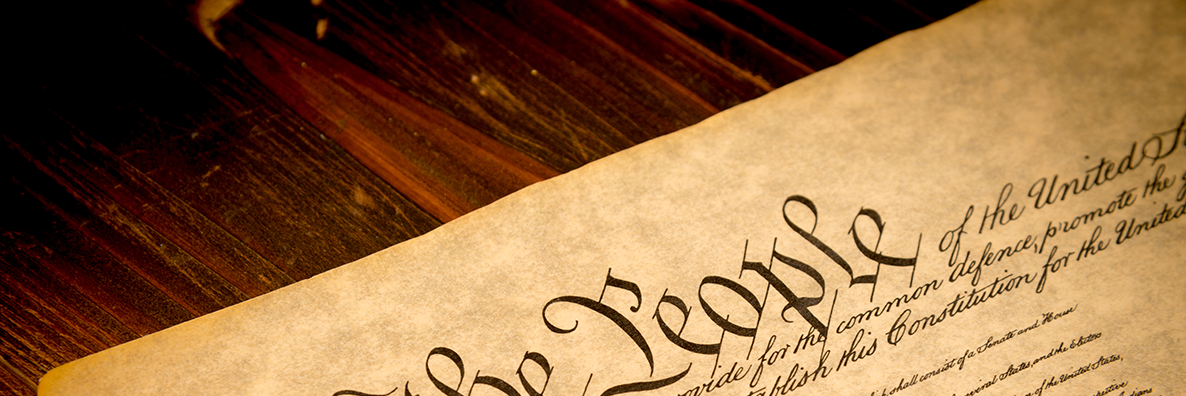 the People of the United
ovide for the common defence, promote the
tablish this Constitution for the United
shall consist of a Senate and House
veral States, and the Electors
of the United States,